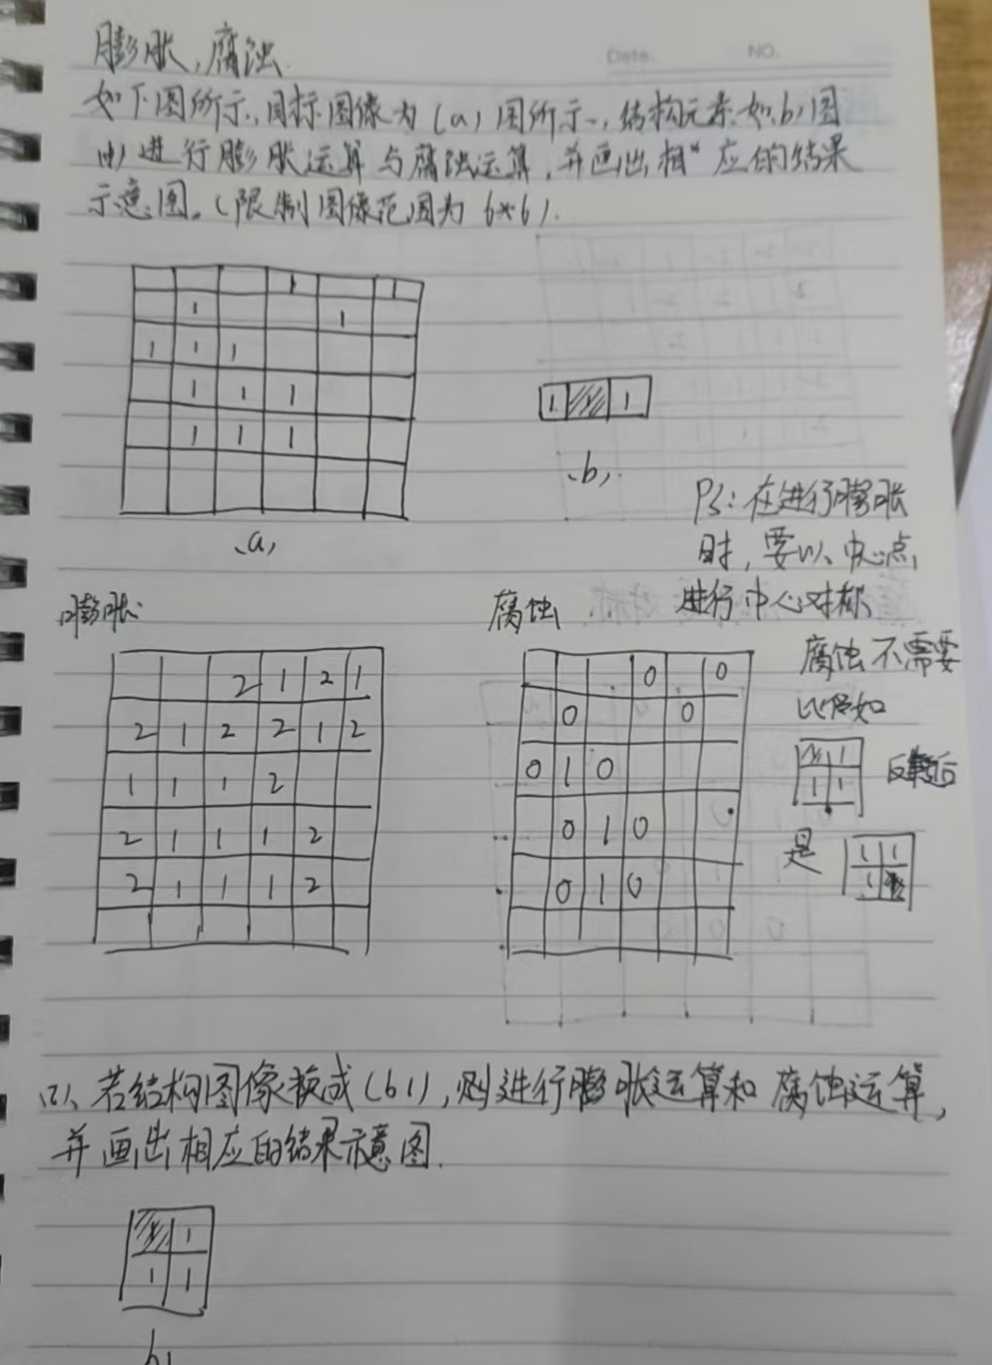 Date. NO.
膨胀,腐蚀.
如下图所示,目标图像为(a)图所示,结构元素如(b)图
(1)进行膨胀运算与腐蚀运算,并画出相应的结果
示意图。(限制图像范围为6*6).
1 1
1 1
1 1 1
1 1 1
1 1 1
1 1 1
(a)
(b)
PS:在进行膨胀
时,要以中心点
进行中心对称
膨胀
腐蚀
腐蚀不需要
比如
反转后
是
2 1 2 1
2 1 2 2 1 2
1 1 1 2
2 1 1 1 2
2 1 1 1 2
0 0
0 0
0 1 0
0 1 0
0 1 0
1 1
1 1
1 1
1
(2)、若结构图像换成(b1),则进行膨胀运算和腐蚀运算,
并画出相应的结果示意图.
1
1 1
b1